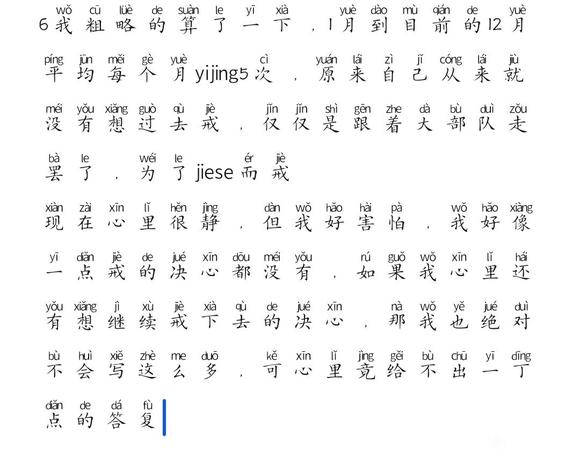 wǒ cū lüè de suàn le yī xià yuè dào mù qián de yuè
6我粗略的算了一下，1月到目前的12月
píng jūn měi gè yuè cì yuán lái zì jǐ cóng lái jiù
平均每个月yijing5次，原来自己从来就
méi yǒu xiǎng guò qù jiè jǐn jǐn shì gēn zhe dà bù duì zǒu
没有想过去戒，仅仅是跟着大部队走
bà le wéi le ér jiè
罢了，为了jiese而戒
xiàn zài xīn lǐ hěn jìng dàn wǒ hǎo hài pà wǒ hǎo xiàng
现在心里很静，但我好害怕，我好像
yī diǎn jiè de jué xīn dōu méi yǒu rú guǒ wǒ xīn lǐ hái
一点戒的决心都没有，如果我心里还
yǒu xiǎng jì xù jiè xià qù de jué xīn nà wǒ yě jué duì
有想继续戒下去的决心，那我也绝对
bù huì xiě zhè me duō kě xīn lǐ jìng gěi bù chū yī dīng
不会写这么多，可心里竟给不出一丁
diǎn de dá fù
点的答复